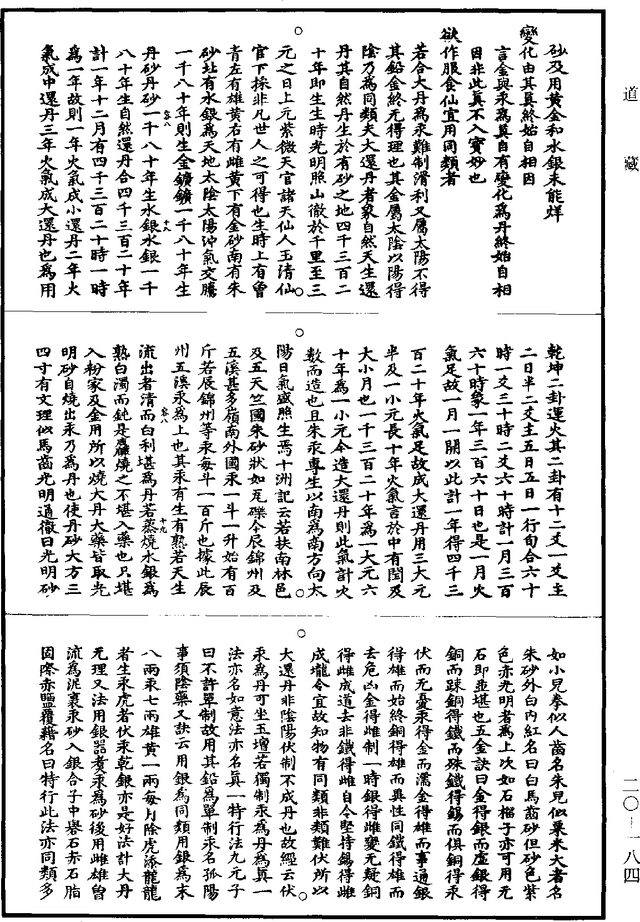 道藏
砂及用黃金和水銀未能烊
變化由其真終始自相因
言金與汞爲真自有變化爲丹終始自相
因非此真不入寶妙也
欲作服食仙宜用同類者
若合大丹爲汞難制滑利又屬太陽不得
其鉛金終无得理也其金屬太陰以陽得
陰乃爲同類夫大還丹者象自然天生還
丹其自然丹生於有砂之地四千三百二
十年即生生時光明照山徹於千里至三
元之日上元紫微天官諸天仙人玉清仙
官下採非凡世人之可得也生時上有曾
青左有雄黃右有雌黃下有金砂南有朱
砂北有水銀爲天地太陰太陽沖氣交騰
一千八十年則生金鑛鑛一千八十年生
丹砂丹砂一千八十年生水銀水銀一千
八十年生自然還丹合四千三百二十年
計一年十二月有四千三百二十時一時
爲一年故則一年火氣成小還丹二年火
氣成中還丹三年火氣成大還丹也爲用
乾坤二卦運火其二卦有十二爻一爻主
二日半二爻主五日五日一行旬合六十
時一爻三十時二爻六十時計一月三百
六十時象一年三百六十日也是一月火
氣足故一月一開以此計一年得四千三
百二十年火氣足故成大還丹用三大元
半及一小元長十年火氣言於中有閏及
大小月也一千三百二十年爲一大元六
十年爲一小元今造大還丹則此氣計火
數而造也且朱汞專生以南爲南方向太
陽日氣盛照生焉十洲記云若扶南林邑
及五天竺國朱砂狀如瓦礫今辰錦州及
五溪甚多嶺南外國汞一斗一升始有百
斤若辰錦州等汞每斗一百斤也據此辰
州五溪汞爲上也其汞有生有熟若天生
流出者清而白利堪爲丹若蒸燒水銀爲
熟白濁而鈍是麤燒之不堪入藥也只堪
入粉家及金用所以燒大丹大藥皆取光
明砂自燒出汞乃爲丹也使丹砂大方三
四寸有文理似馬齒光明通徹曰光明砂
如小兒拳似人齒名朱兒似粟米大者名
朱砂外白内紅名曰白馬齒砂但砂色紫
色赤光明者爲上次如石榴子亦可用元
石即並堪也五金訣曰金得銀而虛銀得
銅而踈銅得鐵而殊鐵得錫而俱銅得汞
伏而无憂汞得金而濡金得雄而事通銀
得雄而始終銅得雄而異性同鐵得雄而
去危凶金得雌制一時銀得雌變无疑銅
得雌成道去非鐵得雌自令堅持錫得雌
成壠令宜故知物有同類非類難伏所以
大還丹非陰陽伏制不成丹也故經云伏
汞爲丹可坐玉壇若獨制汞爲丹爲真一
法亦名如意法亦名真一特行法九元子
曰不許單制故用其鉛爲單制汞名孤陽
事須陰藥又訣云用銀爲同類用銀爲末
八兩汞七兩雄黃一兩每月除虎添龍龍
者生汞虎者伏汞乾銀亦是好法計大丹
无理又法用銀器煑汞爲砂後用雌雄曾
流爲泥裹汞砂入銀合子中礜石赤石脂
固際赤鹽覆藉名曰特行此法亦同類多
二〇—一八四